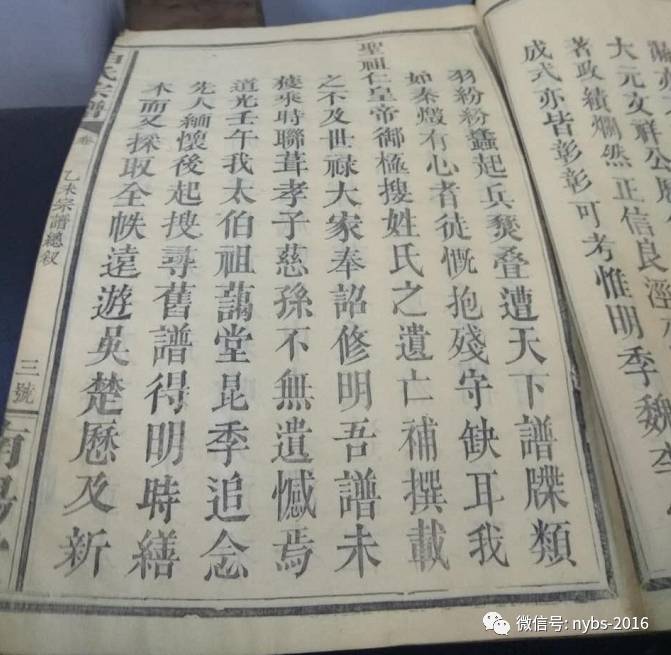 大元文祥公
著政績爛然正信良
成式亦皆彰彰可考惟明季魏李
羽紛紛蠭起兵燹叠遭天下譜牒類
如秦燬有心者徒慨抱殘守缺耳我
聖祖仁皇帝御極搜姓氏之遺亡補撰載
之不及世祿大家奉詔修明吾譜未
獲乘時聯葺孝子慈孫不無遺憾焉
道光壬午我太伯祖藹堂昆季追念
先人緬懷後起搜尋舊譜得明時繕
本而又採取全帙遠遊吳楚歷及新
氏宗譜
卷
乙未宗譜總敘
三號
南陽
微信号: nybs-2016